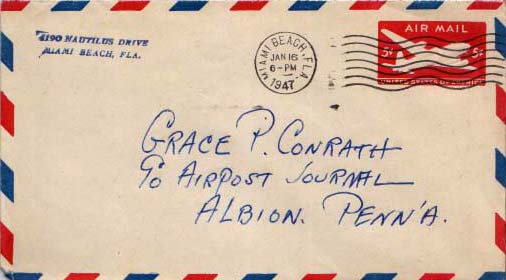 4190 NAUTILUS DRIVE
MIAMI BEACH, FLA.
MIAMI BEACH, FLA.
JAN 16
6-PM
1947
AIR MAIL
5¢ 5¢
UNITED STATES OF AMERICA
GRACE P. CONRATH
℅ AIRPOST JOURNAL
ALBION. PENN'A.